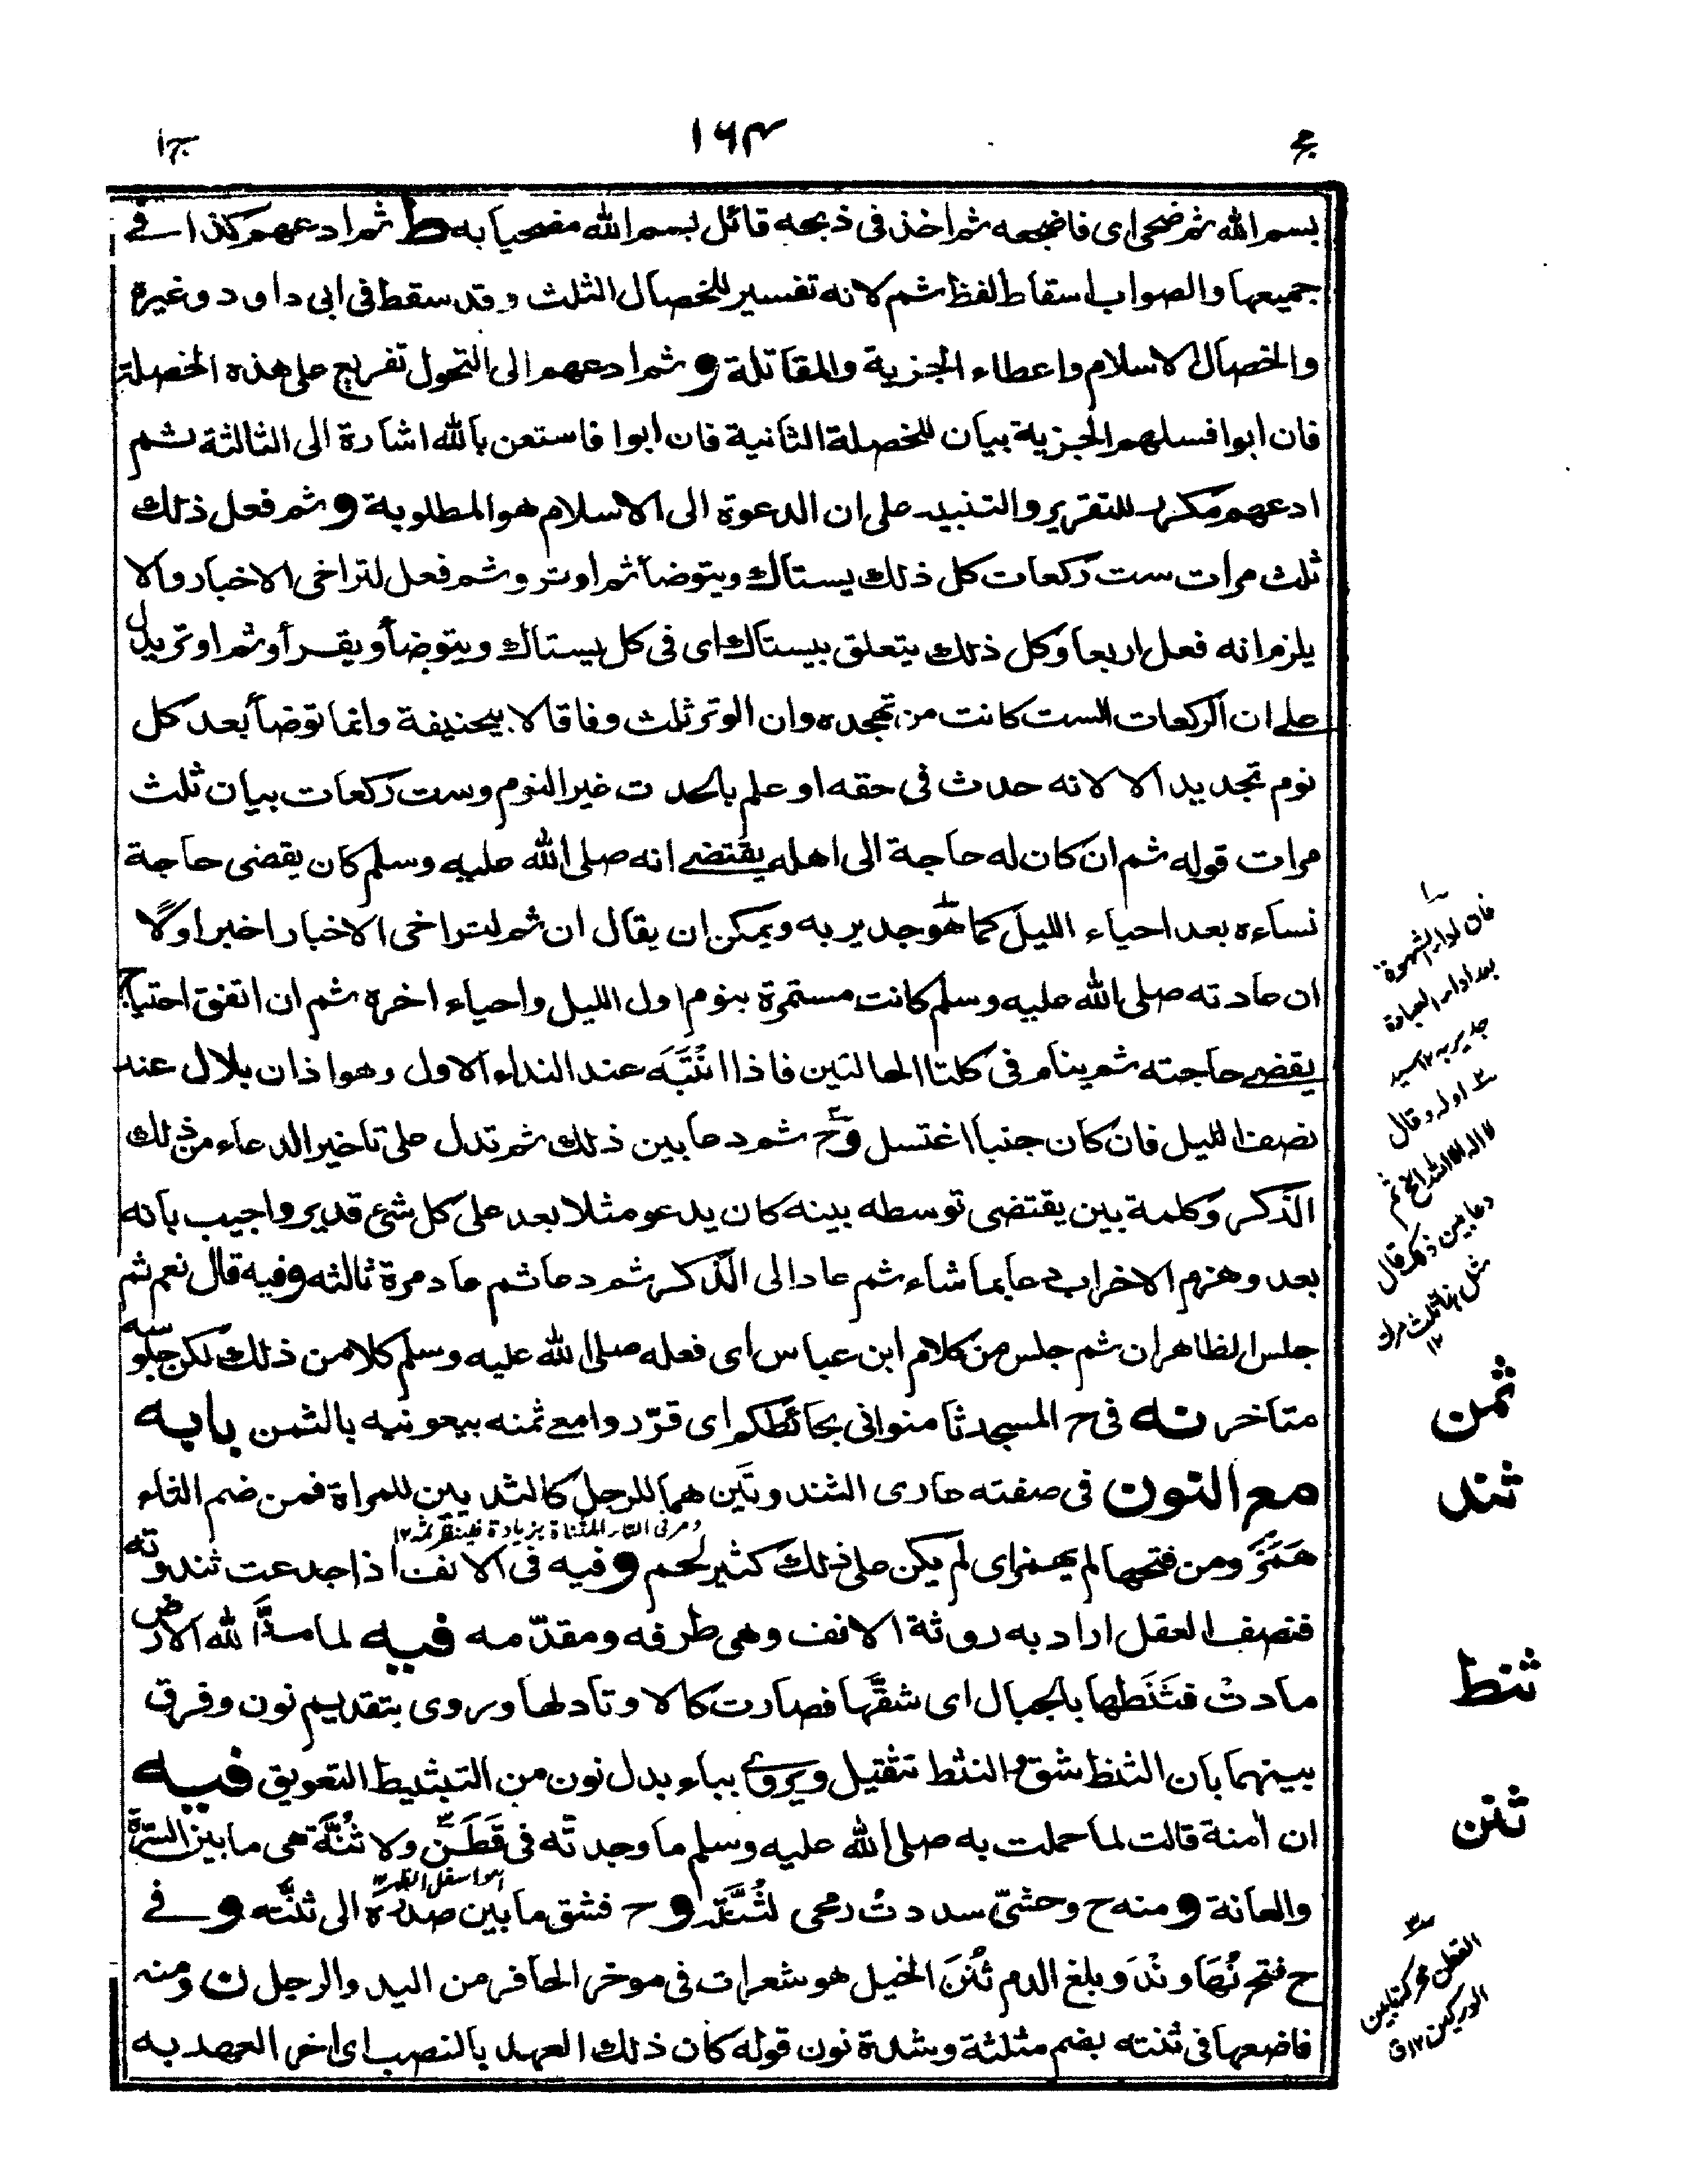 ج
١٦٤
ج١
بسم الله ثم ضحى اى فاضجعه ثم اخذ فى ذبحه قائل بسم الله مضحيا به ط ثم ادعهم كذا فے
جميعها والصواب اسقاط لفظ ثم لانه تفسير للخصال الثلث وقد سقط فى ابى داود وغيرة
والخصال الاسلام واعطاء الجزية والمقاتلة و ثم ادعهم الى التحول تفريع على هذه الخصلة
فان ابوا فسلهم الجزية بيان للخصلة الثانية فان ابوا فاستعن بالله اشارة الى الثالثة ثم
ادعهم مكرر للتقرير والتنبيه على ان الدعوة الى الاسلام هو المطلوبة و ثم فعل ذلك
ثلث مرات ست ركعات كل ذلك يستاك ويتوضأ ثم اوتر و ثم فعل لتراخى الاخبار والا
يلزم انه فعل اربعا وكل ذلك يتعلق بيستاك اى فى كل يستاك ويتوضأ ويقرأ وثم اوتر يدل
على ان الركعات الست كانت من تهجده وان الوتر ثلث وفاقا لابيحنيفة وانما توضأ بعد كل
نوم تجديد الا لانه حدث فى حقه او علم بالحدث غير النوم وست ركعات بيان ثلث
مرات قوله ثم ان كان له حاجة الى اهله يقتضے انه صلى الله عليه وسلم كان يقضى حاجة
نساءه بعد احياء الليل كما هو جدير به ويمكن ان يقال ان ثم لتراخى الاخبار اخبر اولا
ان عادته صلى الله عليه وسلم كانت مستمرة بنوم اول الليل واحياء اخره ثم ان اتفق احتياج
يقضے حاجته ثم ينام فى كلتا الحالتين فاذا انتبه عند النداء الاول وهو اذان بلال عند
نصف الليل فان كان جنبا اغتسل و ح ثم دعا بين ذلك ثم تدل على تاخير الدعاء من ذلك
الذكر وكلمة بين يقتضى توسطه بينه كان يدعو مثلا بعد على كل شئ قدير واجيب بانه
بعد وهزم الاحزاب دعا بما شاء ثم عاد الى الذكر ثم دعا ثم عاد مرة ثالثه وفيه قال نعم ثم
جلس الظاهر ان ثم جلس من كلام ابن عباس اى فعله صلى الله عليه وسلم كلا من ذلك لكن جلوسه
متاخر نه فى ح المسجد ثامنوانى بحائطكم اى قرّروا معے ثمنه بيعونيه بالثمن بابه
مع النون فى صفته عارى الثندوتين هما للرجل كالثديين للمراة فمن ضم الثاء
ومر فى التاء المثناة بزيادة فلينظر ثمه ١٢
همز ومن فتحها لم يهمز اى لم يكن على ذلك كثير لحم و فيه فى الانف اذا جدعت ثندوته
فنصف العقل اراد به روثة الانف وهى طرفه ومقدّمه فيه لما مدّ الله الارض
مادت فثنطها بالجبال اى شقّها فصارت كالاوتاد لها وروى بتقديم نون وفرق
بينهما بان الثنط شق والنثط تثقيل ويروى بباء بدل نون من التثبيط التعويق فيه
ان أمنة قالت لما حملت به صلى الله عليه وسلم ما وجدته فى قَطَن ولا ثُنّة هى ما بين السرّة
هو اسفل الظهر ١٢
والعانة و منه ح وحشىّ سددت رمحى لثُنّته و ح فشق ما بين صدره الى ثنّته و فے
ح فتح نهاوند وبلغ الدم ثُنَنَ الخيل هو شعرات فى موخر الحافر من اليد والرجل ن ومنه
فاضعها فى ثنته بضم مثلثة وشدة نون قوله كان ذلك العهد بالنصب اى اخر العهد به
فان لدار الشهوة
بعد اداء العبادة
جدير به ١٢ سيد
اوله وقال
لا اله الا الله الخ ثم
دعا بين ذلك قال
مثل هذا ثلث مرات
١٢
ثمن
ثند
ثنط
ثنن
القطن محركة ما بين
الوركين ١٢ ق